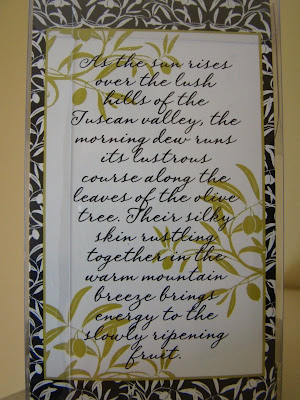 As the sun rises
over the lush
hills of the
Tuscan valley, the
morning dew runs
its lustrous
course along the
leaves of the olive
tree. Their silky
skin rustling
together in the
warm mountain
breeze brings
energy to the
slowly ripening
fruit.